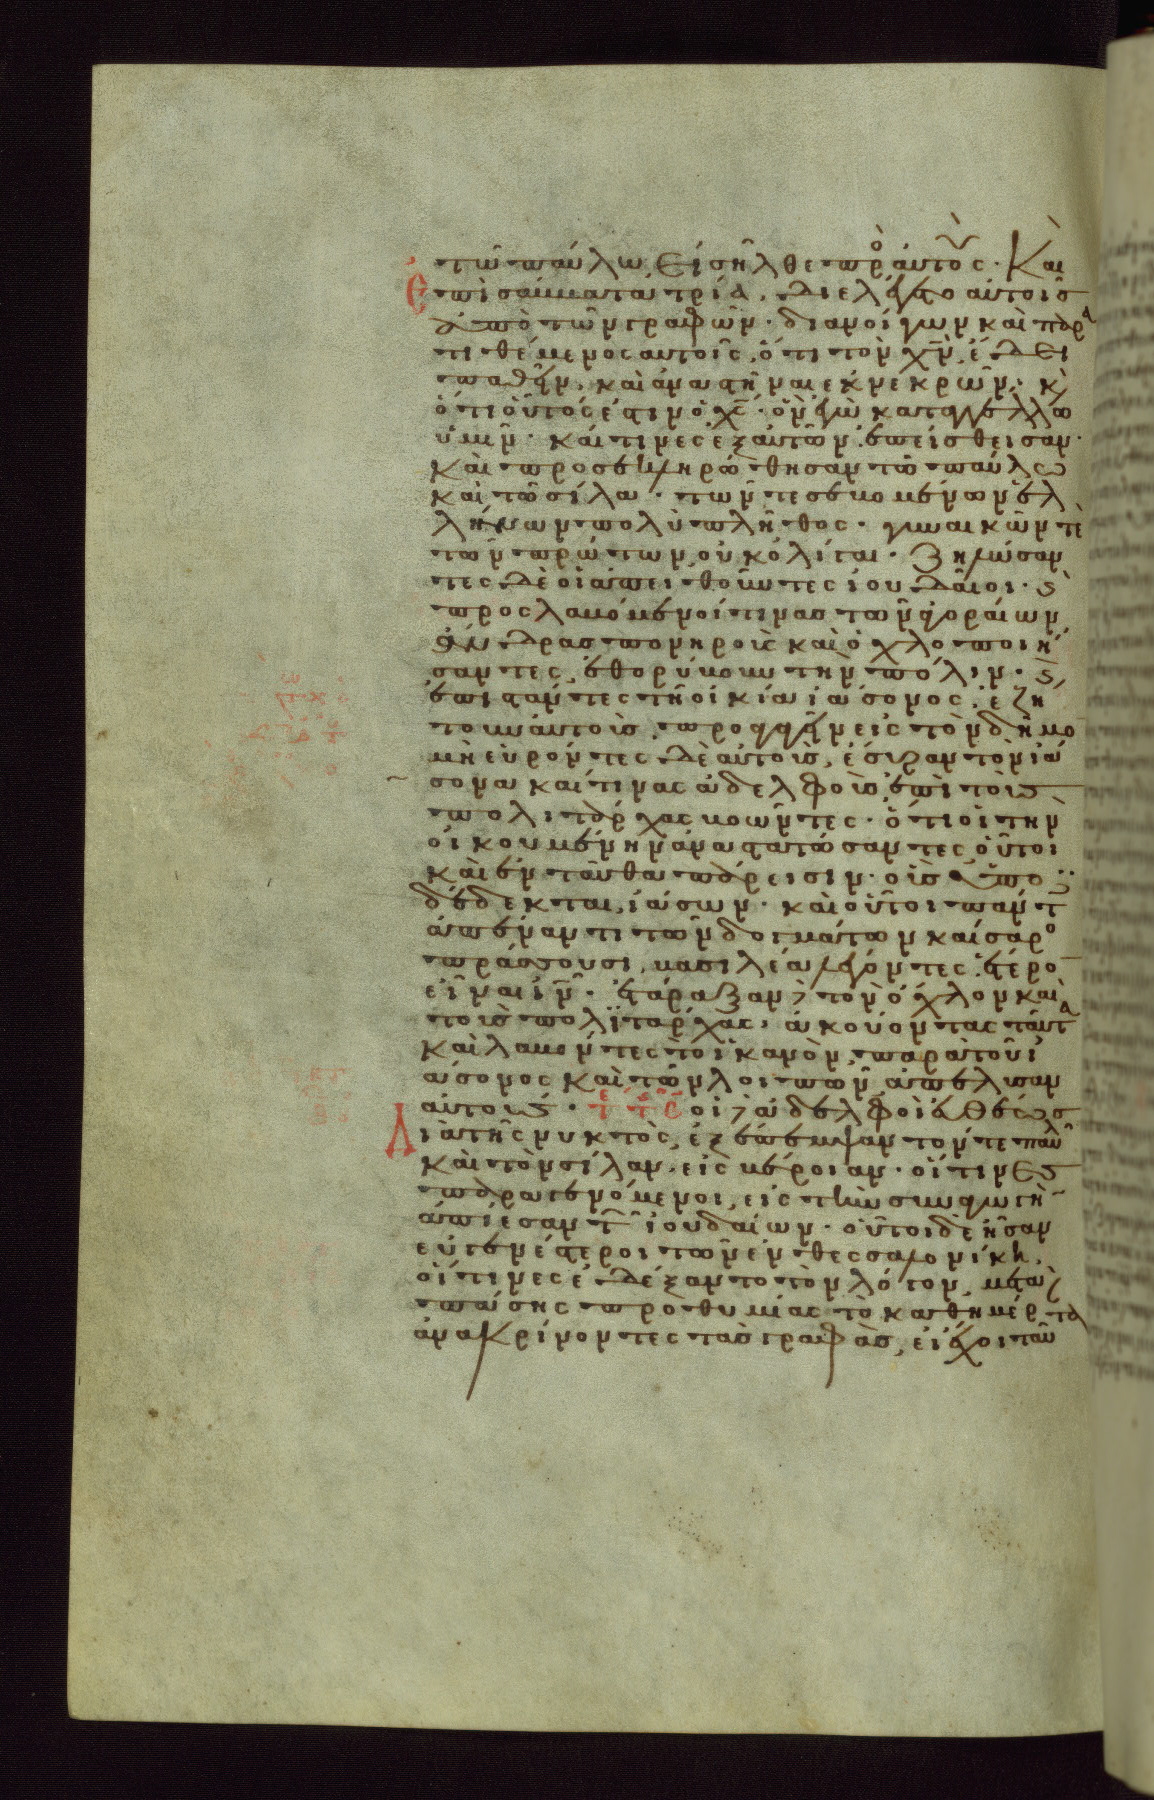 τῶ παύλω, εἰσῆλθε πρὸ αὐτοὺς· Καὶ
ἐπὶ σάββατα τρία, διελέγετο αὐτοῖς
ἀπὸ τῶν γραφῶν· διανοίγων καὶ παρα
τιθέμενος αὐτοῖς, ὅτι τὸν χ̅ν̅, ἔδει
παθεῖν, καὶ ἀναστῆναι ἐκ νεκρῶν· κ̀
ὅτι οὗτός ἐστιν ὁ χ̅ς̅· ὃν ἐγὼ καταγγέλλω
ὑμῖν· καί τινες ἐξ αὐτῶν ἐπείσθεισαν·
καὶ προσεκληρώθησαν τῶ παύλω
καὶ τῶ σίλα· τῶν τε σεβομένων ἑλ
λήνων πολὺ πλῆθος· γυναικῶν τὲ
τῶν πρώτων, οὐκ ὀλίγαι· Ζηλώσαν
τες δὲ οἱ ἀπειθοῦντες ἰουδαῖοι· ς̀
προσλαβόμενοί τινας τῶν ἀγοραίων,
ἄνδρας πονηροὺς καὶ ὀχλοποιή
σαντες, ἐθορύβουν τὴν πόλιν· ς̀
ἐπιστάντες τῆ οἰκία ἰάσονος, ἐζή
τουν αὐτοὺς, προαγαγεῖν εἰς τὸν δῆμο
μὴ εὑρόντες δὲ αὐτοὺς, ἔσυραν τὸν ἰά
σονα καί τινας ἀδελφοὺς, ἐπὶ τοὺς
πολιτάρχας βοῶντες· ὅτι οἱ τὴν
οἰκουμένην ἀναστατώσαντες, οὗτοι
καὶ ἐνταῦθα πάρεισιν· οὓς ὑπο
δέδεκται, ἰάσων· καὶ οὗτοι πάντ
ἀπέναντι τῶν δογμάτων καίσαρο
πράσσουσι, βασιλέα λέγοντες ἕτερο
εἶναι ἰ̅ν̅· ἐτάραξαν δὲ τὸν ὄχλον καὶ
τοὺς πολιτάρχας, ἀκούοντας ταῦτα
καὶ λαβόντες τὸ ἱκανὸν παρὰ τοῦ ἰ
άσονος καὶ τῶν λοιπῶν ἀπέλυσαν
αὐτούς· οἱ δὲ ἀδελφοὶ εὐθέως
Διὰ τῆς νυκτὸς, ἐξέπεμψαν τόν τε παῦλ
καὶ τὸν σίλαν, εἰς βέροιαν· οἵτινες
παραγενόμενοι, εἰς τὴν συναγωγὴ
ἀπίεσαν τ ἰουδαίων· οὗτοι δὲ ἦσαν
εὐγενέστεροι τῶν ἐν θεσσαλονίκη,
οἵτινες ἐδέξαντο τὸν λόγον, μετὰ
πάσης προθυμίας τὸ καθημέραν
ἀνακρίνοντες τὰς γραφὰς, εἰ ἔχοι ταῦ